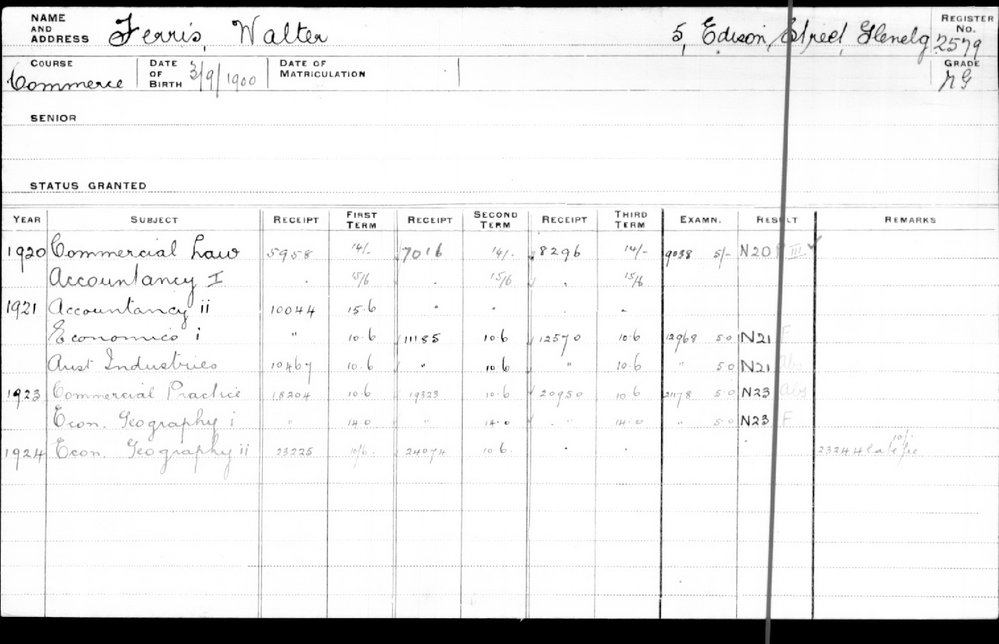 NAME AND ADDRESS Ferris, Walter 5, Edison Street, Glenelg REGISTER No. 2579
COURSE Commerce DATE OF BIRTH 3/9/1900 DATE OF MATRICULATION GRADE NG
SENIOR
STATUS GRANTED
YEAR SUBJECT RECEIPT FIRST TERM RECEIPT SECOND TERM RECEIPT THIRD TERM EXAMN. RESULT REMARKS
1920 Commercial Law 5958 14/- 7016 14/- 8296 14/- 9038 5/- N20 III ✓
Accountancy I . 15/6 . 15/6 . 15/6
1921 Accountancy ii 10044 15.6 " " " "
Economics i " 10.6 11185 10.6 12570 10.6 12968 5.0 N21 F
Aust Industries 10467 10.6 " 10.6 " 10.6 " 5.0 N21
1923 Commercial Practice 18204 10.6 19323 10.6 20950 10.6 21178 5.0 N23
Econ. Geography i " 14.0 " 14.0 " 14.0 " 5.0 N23 F
1924 Econ. Geography ii 23225 10/6 24074 10.6 . . . 23244 late fee 10/-